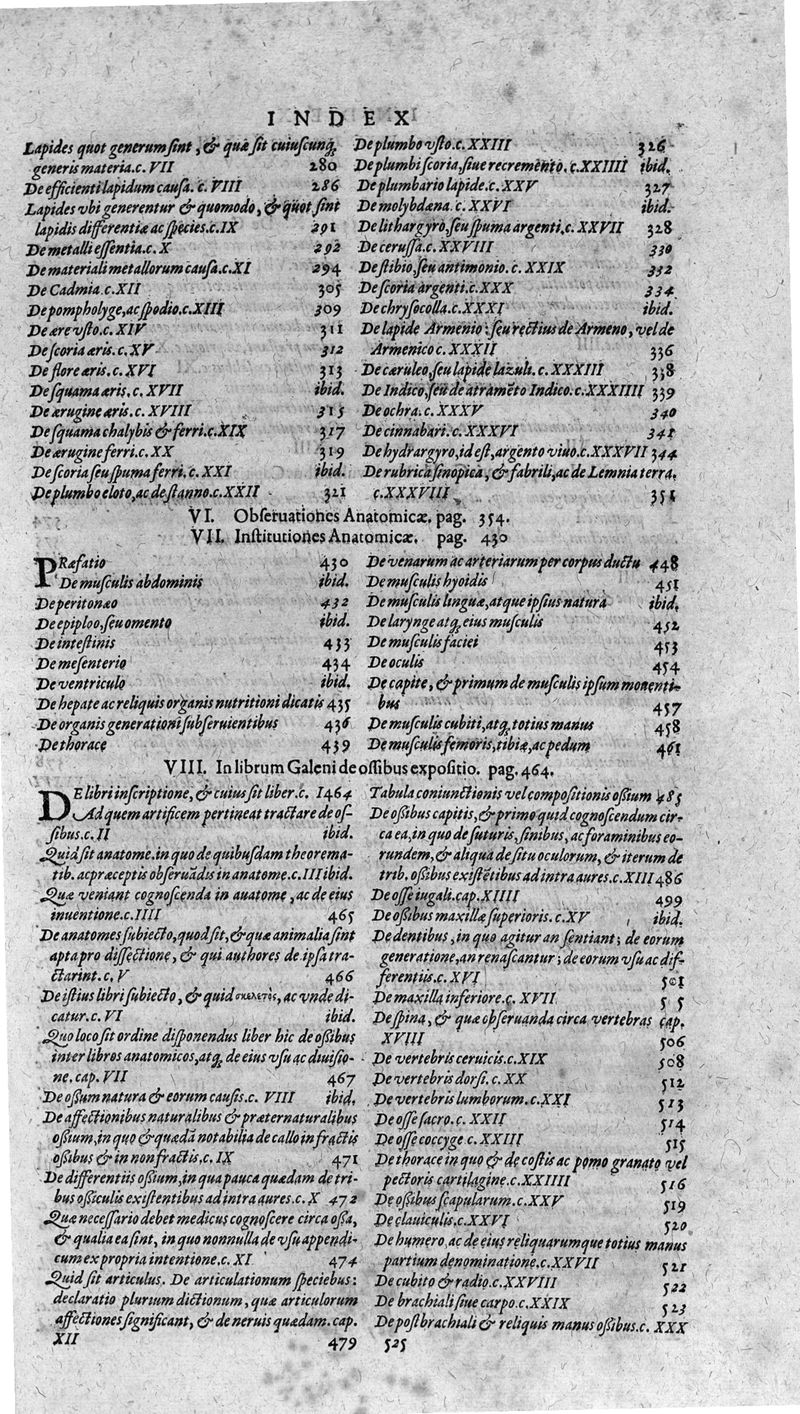 INDEX
Lapides quot generum sint, & quæ sit cuiuscunq;
generis materia. c. VII 280
De efficienti lapidum causa. c. VIII 286
Lapides vbi generentur & quomodo, & quot sint
lapidis differentiæ ac species. c. IX 291
De metalli essentia. c. X 292
De materiali metallorum causa. c. XI 294
De Cadmia. c. XII 305
De pompholyge, ac spodio. c. XIII 309
De ære vsto. c. XIV 311
De scoria æris. c. XV 312
De flore æris. c. XVI 313
De squama æris. c. XVII ibid.
De ærugine æris. c. XVIII 315
De squama chalybis & ferri. c. XIX 317
De ærugine ferri. c. XX 319
De scoria seu spuma ferri. c. XXI ibid.
De plumbo eloto, ac de stanno. c. XXII 321
De plumbo vsto. c. XXIII 326
De plumbi scoria, siue recremento. c. XXIIII ibid.
De plumbario lapide. c. XXV 327
De molybdæna. c. XXVI ibid.
De lithargyro, seu spuma argenti. c. XXVII 328
De cerussa. c. XXVIII 330
De stibio, seu antimonio. c. XXIX 332
De scoria argenti. c. XXX 334
De chrysocolla. c. XXXI ibid.
De lapide Armenio: seu rectius de Armeno, vel de
Armenico c. XXXII 336
De cæruleo, seu lapide lazuli. c. XXXIII 338
De Indico, seu de atramẽto Indico. c. XXXIIII 339
De ochra. c. XXXV 340
De cinnabari. c. XXXVI 341
De hydrargyro, id est, argento viuo. c. XXXVII 344
De rubrica sinopica, & fabrili, ac de Lemnia terra.
c. XXXVIII 351
VI. Obseruationes Anatomicæ. pag. 354.
VII. Institutiones Anatomicæ. pag. 430
PRæfatio 430
De musculis abdominis ibid.
De peritonæo 432
De epiploo, seu omento ibid.
De intestinis 433
De mesenterio 434
De ventriculo ibid.
De hepate ac reliquis organis nutritioni dicatis 435
De organis generationi subseruientibus 436
De thorace 439
De venarum ac arteriarum per corpus ductu 448
De musculis hyoidis 451
De musculis linguæ, atque ipsius natura ibid.
De larynge atq; eius musculis 452
De musculis faciei 453
De oculis 454
De capite, & primum de musculis ipsum mouenti-
bus 457
De musculis cubiti, atq; totius manus 458
De musculis femoris, tibiæ, ac pedum 461
VIII. In librum Galeni de ossibus expositio. pag. 464.
DE libri inscriptione, & cuius sit liber. c. I 464
Ad quem artificem pertineat tractare de os-
sibus. c. II ibid.
Quid sit anatome. in quo de quibusdam theorema-
tib. ac præceptis obseruãdis in anatome. c. III ibid.
Quæ veniant cognoscenda in auatome, ac de eius
inuentione. c. IIII 465
De anatomes subiecto, quod sit, & quæ animalia sint
apta pro dissectione, & qui authores de ipsa tra-
ctarint. c. V 466
De istius libri subiecto, & quid σκελετὸς, ac vnde di-
catur. c. VI ibid.
Quo loco sit ordine disponendus liber hic de ossibus
inter libros anatomicos, atq; de eius vsu ac diuisio-
ne. cap. VII 467
De ossium natura & eorum causis. c. VIII ibid.
De affectionibus naturalibus & præternaturalibus
ossium, in quo & quædã notabilia de callo in fractis
ossibus & in non fractis. c. IX 471
De differentiis ossium, in qua pauca quædam de tri-
bus ossiculis existentibus ad intra aures. c. X 472
Quæ necessario debet medicus cognoscere circa ossa,
& qualia ea sint, in quo nonnulla de vsu appendi-
cum ex propria intentione. c. XI 474
Quid sit articulus. De articulationum speciebus:
declaratio plurium dictionum, quæ articulorum
affectiones significant, & de neruis quædam. cap.
XII 479
Tabula coniunctionis vel compositionis ossium 485
De ossibus capitis, & primo quid cognoscendum cir-
ca ea, in quo de suturis, finibus, ac foraminibus eo-
rundem, & aliqua de situ oculorum, & iterum de
trib. ossibus existẽtibus ad intra aures. c. XIII 486
De osse iugali. cap. XIIII 499
De ossibus maxillæ superioris. c. XV ibid.
De dentibus, in quo agitur an sentiant; de eorum
generatione, an renascantur; de eorum vsu ac dif-
ferentiis. c. XVI 501
De maxilla inferiore. c. XVII 5 5
De spina, & quæ obseruanda circa vertebras cap.
XVIII 506
De vertebris ceruicis. c. XIX 508
De vertebris dorsi. c. XX 512
De vertebris lumborum. c. XXI 513
De osse sacro. c. XXII 514
De osse coccyge c. XXIII 515
De thorace in quo & de costis ac pomo granato vel
pectoris cartilagine. c. XXIIII 516
De ossibus scapularum. c. XXV 519
De clauiculis. c. XXVI 520
De humero, ac de eius reliquarumque totius manus
partium denominatione. c. XXVII 521
De cubito & radio. c. XXVIII 522
De brachiali siue carpo. c. XXIX 523
De postbrachiali & reliquis manus ossibus. c. XXX
525